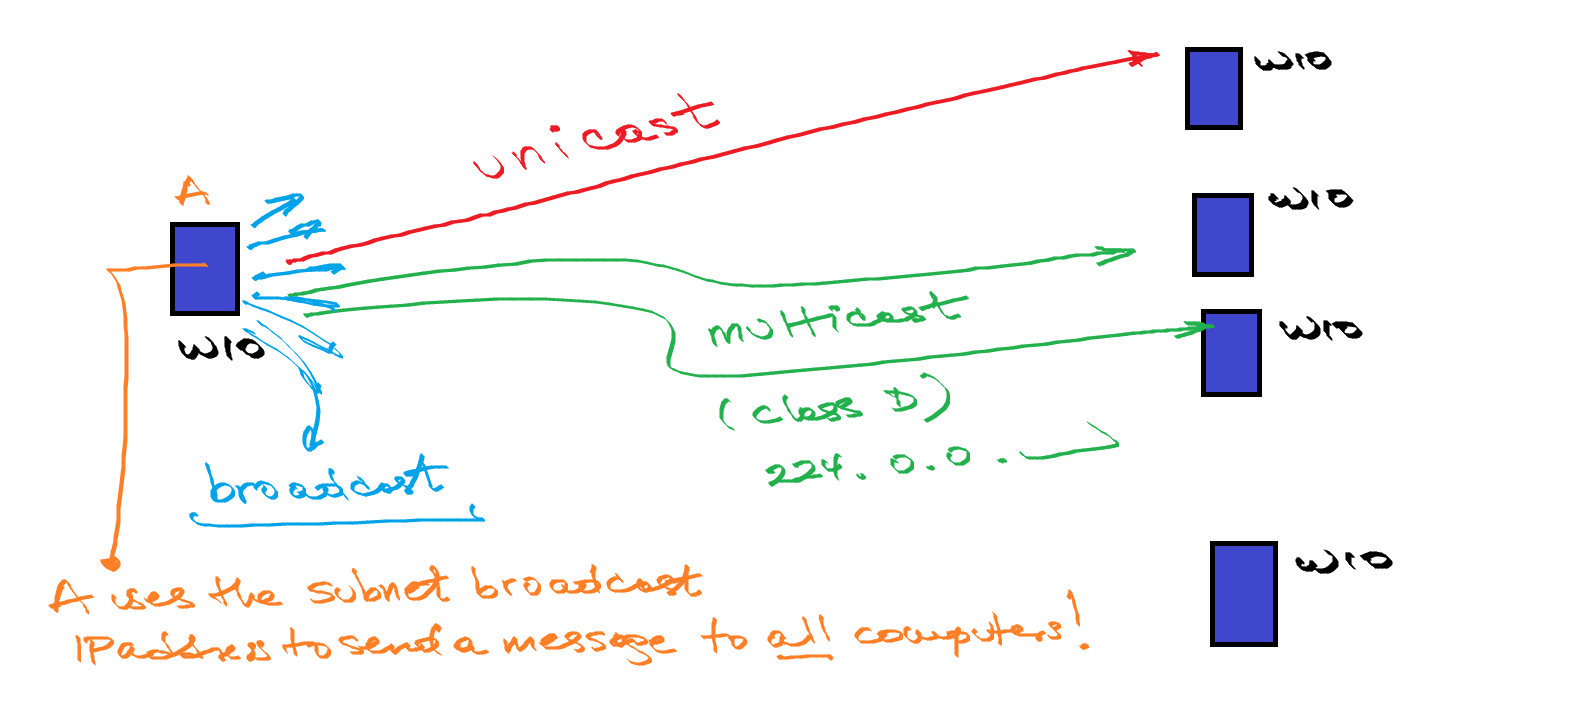 W10
unicast
W10
A
multicast
W10
W10
(class D)
224.0.0.
broadcast
W10
A uses the subnet broadcast
IP address to send a message to all computers!